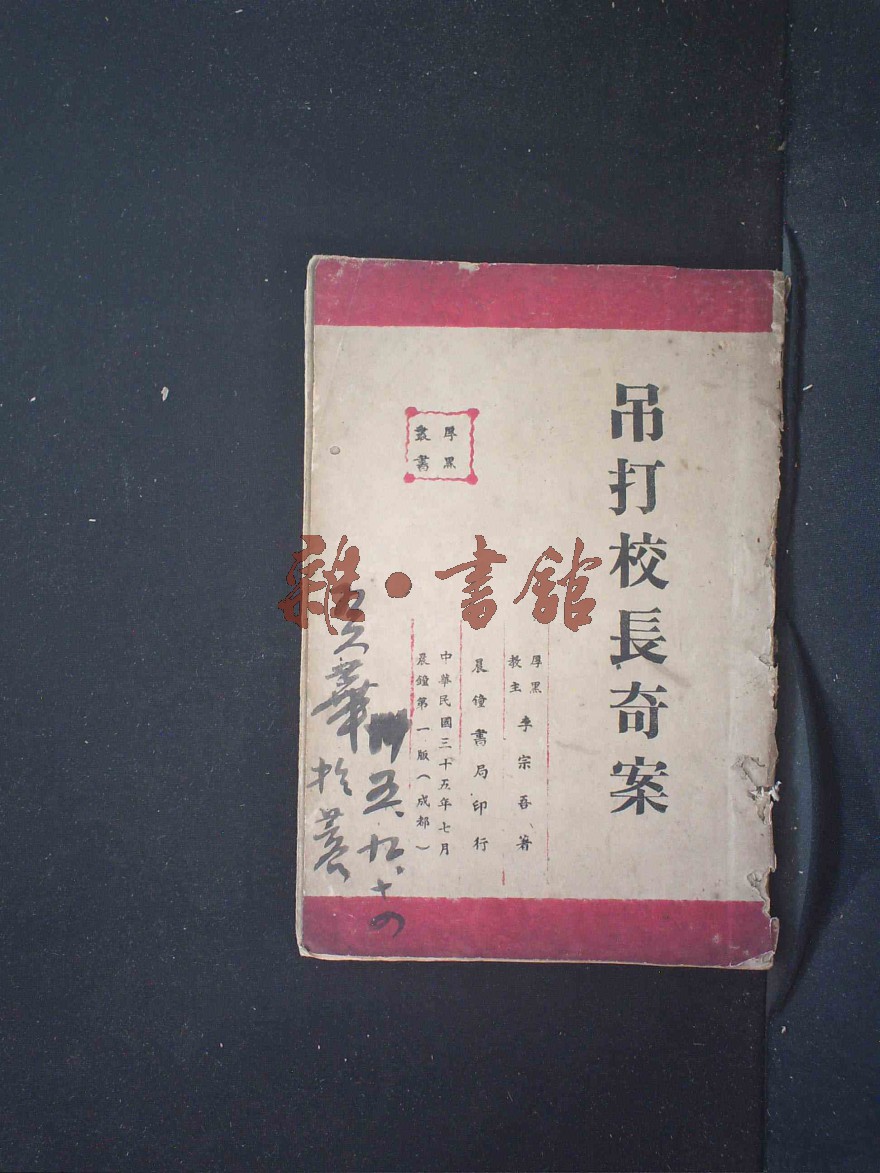 吊打校長奇案
厚黑
教主
李宗吾、著
晨鐘書局印行
中華民國三十五年七月
晨鐘第一版(成都)
厚黑
叢書
雜·書館
卅五、九、十四